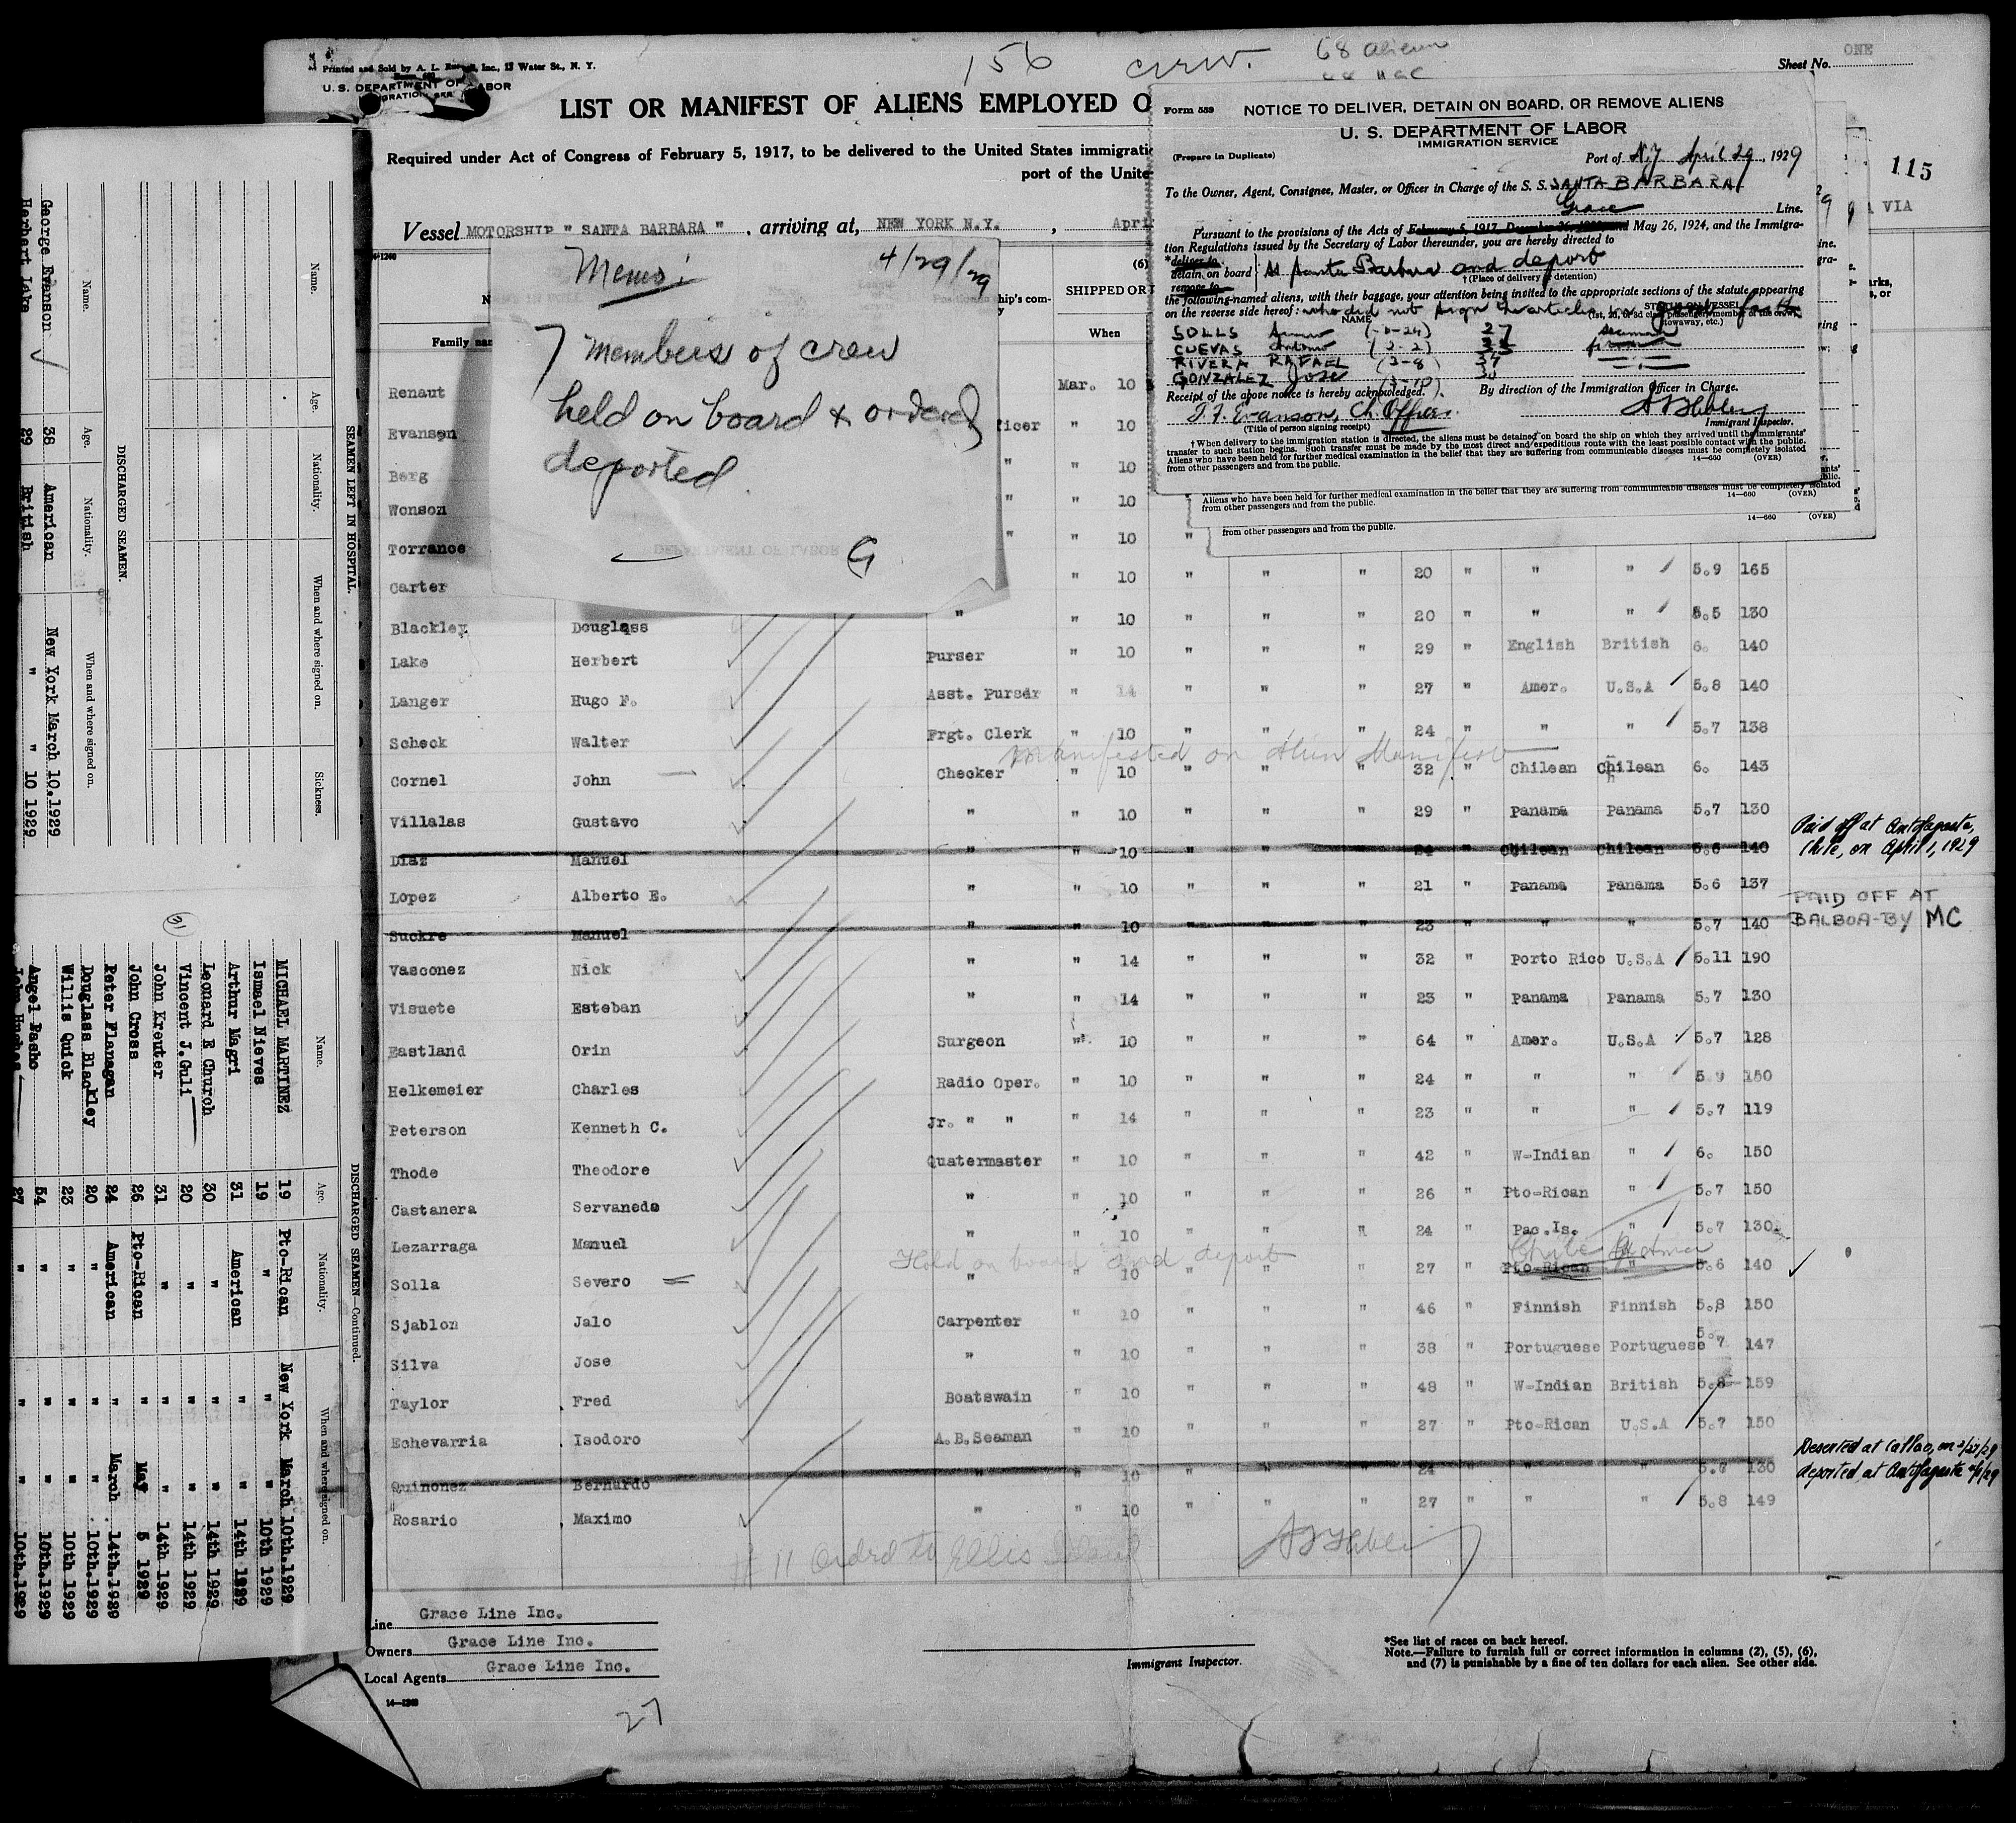 156 crew. 68 aliens
ONE
Sheet No.
Printed and Sold by A. L. Inc., Water St., N. Y.
U. S. DEPARTMENT OF LABOR
LIST OR MANIFEST OF ALIENS EMPLOYED O
Required under Act of Congress of February 5, 1917, to be delivered to the United States immigrati
port of the Unite
Vessel MOTORSHIP " SANTA BARBARA " , arriving at, NEW YORK N.Y. , Apri
115
VIA
Form 559
NOTICE TO DELIVER, DETAIN ON BOARD, OR REMOVE ALIENS
U. S. DEPARTMENT OF LABOR
IMMIGRATION SERVICE
(Prepare in Duplicate)
Port of N.Y April 29, 1929
To the Owner, Agent, Consignee, Master, or Officer in Charge of the S. S. SANTA BARBARA
Grace Line.
Pursuant to the provisions of the Acts of February 5, 1917, December 26, 1920, and May 26, 1924, and the Immigra-
tion Regulations issued by the Secretary of Labor thereunder, you are hereby directed to
*deliver to
detain on board } SS Santa Barbara and deport
remove to
†(Place of delivery or detention)
the following-named aliens, with their baggage, your attention being invited to the appropriate sections of the statute appearing
on the reverse side hereof: who did not sign the articles in good faith
NAME STATUS ON VESSEL
SOLLS (-0-24) 27 seaman
CUEVAS Antonio (2-2)
RIVERA RAFAEL (3-8) 34
GONZALEZ Jose (3-10) 30
Receipt of the above notice is hereby acknowledged. By direction of the Immigration Officer in Charge.
Evanson, Ch. Officer
(Title of person signing receipt) Immigrant Inspector.
†When delivery to the immigration station is directed, the aliens must be detained on board the ship on which they arrived until the immigrants'
transfer to such station begins. Such transfer must be made by the most direct and expeditious route with the least possible contact with the public.
Aliens who have been held for further medical examination in the belief that they are suffering from communicable diseases must be completely isolated
from other passengers and from the public. 14—660 (OVER)
Aliens who have been held for further medical examination in the belief that they are suffering from communicable diseases must be completely isolated
from other passengers and from the public. 14—660 (OVER)
from other passengers and from the public. 14—660 (OVER)
Memo: 4/29/29
7 members of crew
held on board & ordered
deported
G
Family nam
(6)
SHIPPED OR
When
Renaut Mar. 10
Evanson icer " 10
Berg " " 10
Wonson " " 10
Torrance " " 10 "
Carter " 10 " " " 20 " " " 5.9 165
Blackley Douglass " " 10 " " " 20 " " " 5.5 130
Lake Herbert Purser " 10 " " " 29 " English British 6. 140
Langer Hugo F. Asst. Purser " 14 " " " 27 " Amer. U.S.A 5.8 140
Scheck Walter Frgt. Clerk " 10 " " " 24 " " " 5.7 138
Manifested on Alien Manifest
Cornel John Checker " 10 " " " 32 " Chilean Chilean 6. 143
Villalas Gustavo " " 10 " " " 29 " Panama Panama 5.7 130
Diaz Manuel " " 10 " " " 24 " Chilean Chilean 5.6 140 Paid off at Antofagasta,
Chile, on April 1, 1929
Lopez Alberto E. " " 10 " " " 21 " Panama Panama 5.6 137
Suckre Manuel " " 10 " " " 23 " " " 5.7 140 PAID OFF AT
BALBOA-BY MC
Vasconez Nick " " 14 " " " 32 " Porto Rico U.S.A 5.11 190
Visuete Esteban " " 14 " " " 23 " Panama Panama 5.7 130
Eastland Orin Surgeon " 10 " " " 64 " Amer. U.S.A 5.7 128
Helkemeier Charles Radio Oper. " 10 " " " 24 " " " 5.9 150
Peterson Kenneth C. Jr. " " " 14 " " " 23 " " " 5.7 119
Thode Theodore Quatermaster " 10 " " " 42 " W-Indian " 6. 150
Castanera Servanedo " " 10 " " " 26 " Pto-Rican " 5.7 150
Lezarraga Manuel " " 10 " " " 24 " Pac.Is. " 5.7 130
Hold on board and deport Chile
Solla Severo " " 10 " " " 27 " Pto-Rican " 5.6 140
Sjablon Jalo Carpenter " 10 " " " 46 " Finnish Finnish 5.8 150
Silva Jose " " 10 " " " 38 " Portuguese Portuguese 5.7 147
Taylor Fred Boatswain " 10 " " " 48 " W-Indian British 5.8 159
Echevarria Isodoro A.B.Seaman " 10 " " " 27 " Pto-Rican U.S.A 5.7 150
Quinonez Bernardo " " 10 " " " 24 " " " 5.6 130 Deserted at Callao, on 3/27/29
deported at Antofagasta
Rosario Maximo " " 10 " " " 27 " " " 5.8 149
# 11 ordrd to Ellis Island
Line Grace Line Inc.
Owners Grace Line Inc.
Local Agents Grace Line Inc.
Immigrant Inspector.
*See list of races on back hereof.
Note.—Failure to furnish full or correct information in columns (2), (5), (6),
and (7) is punishable by a fine of ten dollars for each alien. See other side.
14—1240
27
SEAMEN LEFT IN HOSPITAL
Name. Age. Nationality. When and where signed on. Sickness.
DISCHARGED SEAMEN.
Name. Age. Nationality. When and where signed on.
George Evanson 38 American New York March 10.1929
Herbert Lake 29 British " " 10 1929
DISCHARGED SEAMEN—Continued.
Name. Age. Nationality. When and where signed on.
MICHAEL MARTINEZ 19 Pto-Rican New York March 10th.1929
Ismael Nieves 19 " " " 10th 1929
Arthur Magri 31 American " " 14th 1929
Leonard E Church 30 " " " 14th 1929
Vincent J.Guli 20 " " " 14th 1929
John Kreuter 31 " " " 14th 1929
John Cross 26 Pto-Rican " May 5 1929
Peter Flanagan 24 American " March 14th.1929
Douglass Blackley 20 " " " 10th.1929
Willis Quick 23 " " " 10th 1929
Angel Pasbo 54 " " " 10th.1929
John Hughes 27 " " " 10th.1929